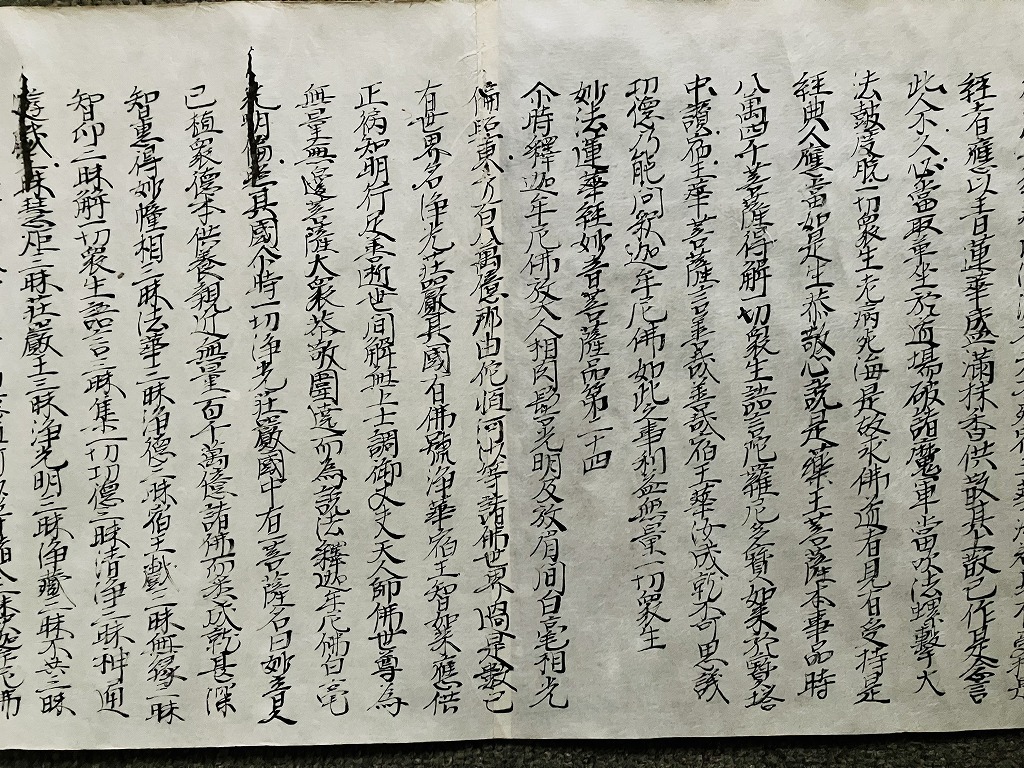 經者應以青蓮華盛滿抹香供散其上散已作是念言
此人不久必當取草坐於道場破諸魔軍當吹法螺擊大
法鼓度脫一切衆生老病死海是故求佛道者見有受持是
經典人應當如是生恭敬心說是藥王菩薩本事品時
八萬四千菩薩得解一切衆生語言陀羅尼多寶如来於寶塔
中讚宿王華菩薩言善哉善哉宿王華汝成就不可思議
功德乃能問釋迦牟尼佛如此之事利益無量一切衆生
妙法蓮華經妙音菩薩品第二十四
尒時釋迦牟尼佛放大人相肉髻光明及放眉間白毫相光
徧照東方百八萬億那由佗恒河沙等諸佛世界過是數已
有世界名浄光莊嚴其國有佛號浄華宿王智如来應供
正遍知明行足善逝世間解無上士調御丈夫天人師佛世尊為
無量無邊菩薩大衆恭敬圍遶而為說法釋迦牟尼佛白毫
光明徧照其國尒時一切浄光莊嚴國中有一菩薩名曰妙音久
已植衆德本供養親近無量百千萬億諸佛而悉成就甚深
智惠得妙幢相三昧法華三昧浄德三昧宿王戲三昧無緣三昧
智印三昧解一切衆生語言三昧集一切功德三昧清浄三昧神通
遊戲三昧慧炬三昧莊嚴王三昧浄光明三昧浄藏三昧不共三昧